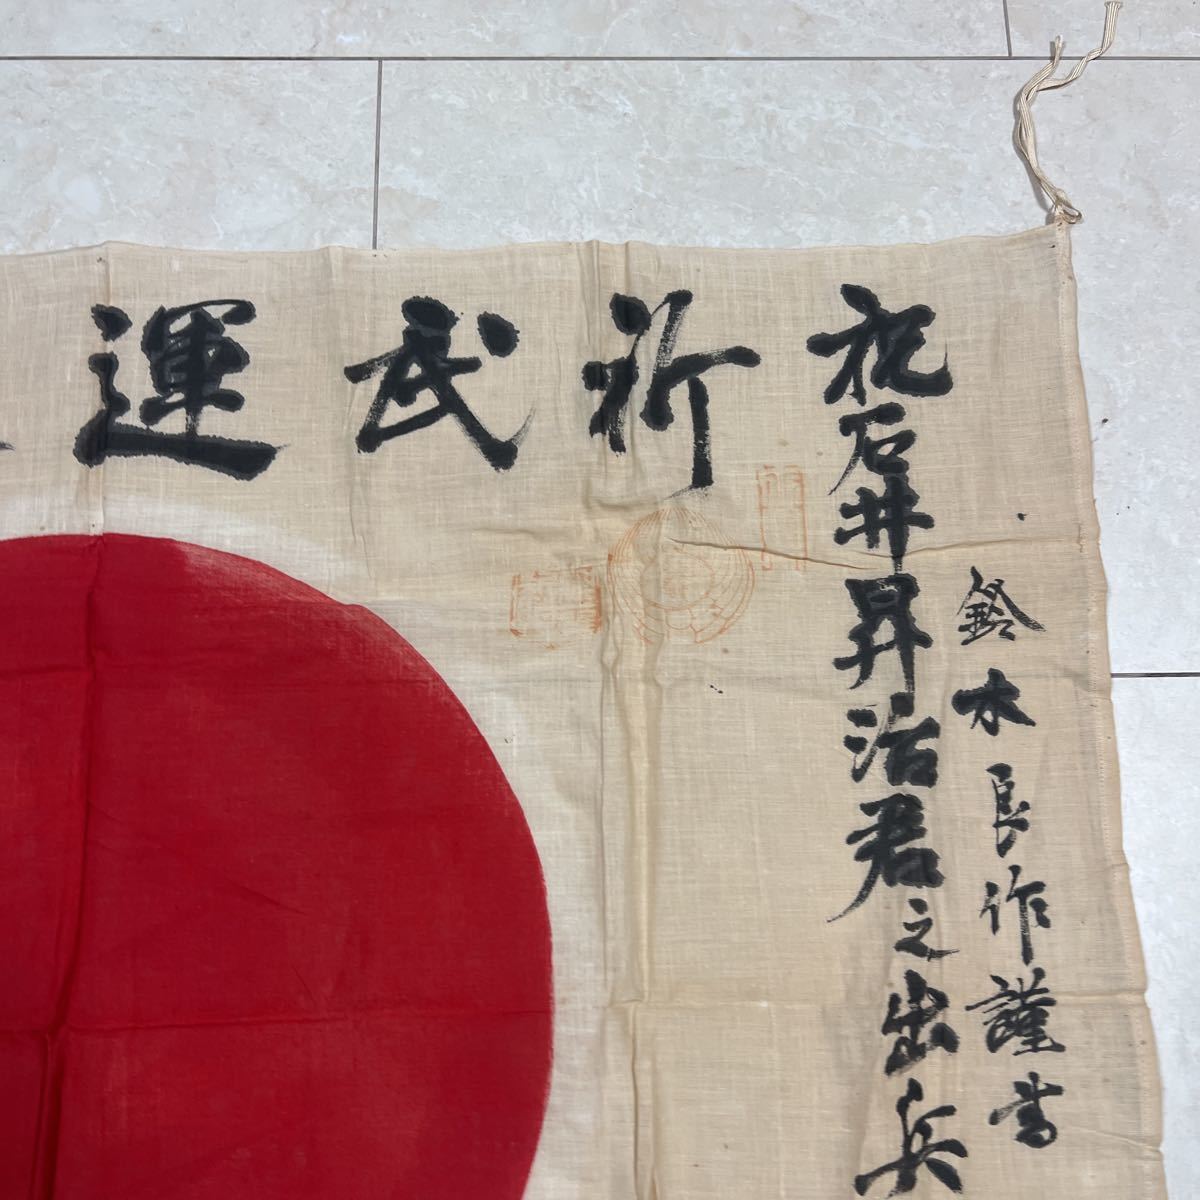 祈武運
祝石井昇治君之出兵
鈴木良作謹書